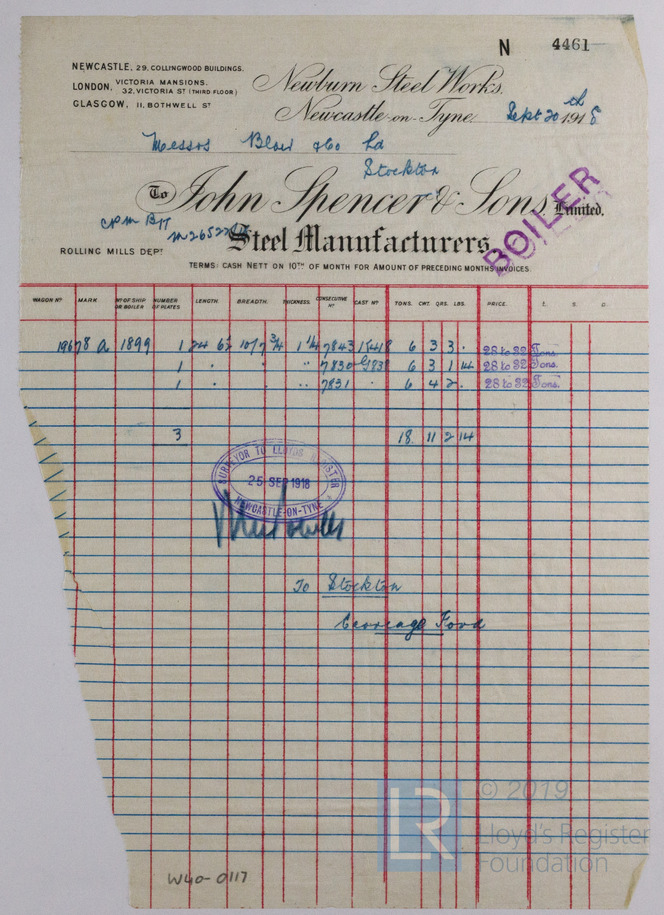 N 4461
NEWCASTLE, 29, COLLINGWOOD BUILDINGS.
LONDON, VICTORIA MANSIONS.
32, VICTORIA ST (THIRD FLOOR)
GLASGOW, 11, BOTHWELL ST
Newburn Steel Works,
Newcastle-on-Tyne Sept 20th 1918
Messrs Blair & Co Ld
Stockton
To John Spencer & Sons Limited,
Steel Manufacturers.
BOILER
ROLLING MILLS DEPT
TERMS: CASH NETT ON 10TH OF MONTH FOR AMOUNT OF PRECEDING MONTHS INVOICES.
WAGON No MARK No OF SHIP OR BOILER NUMBER OF PLATES LENGTH. BREADTH. THICKNESS. CONSECUTIVE No CAST No TONS. CWT. QRS. LBS. PRICE. £. S. D.
1967 8 a 1899 1 24 6½ 10/7 ¾ 1 ¼ 7843 6 3 3 . 28 to 32 Tons.
1 . . " 7830 6 3 1 14 28 to 32 Tons.
1 . . " 7831 . 6 4 2 . 28 to 32 Tons.
3 18. 11 2 14
SURVEYOR TO LLOYDS REGISTER
25 SEP 1918
NEWCASTLE-ON-TYNE
To Stockton
Carriage Ford
LR © 2019
Lloyd's Register
Foundation
W40-0117